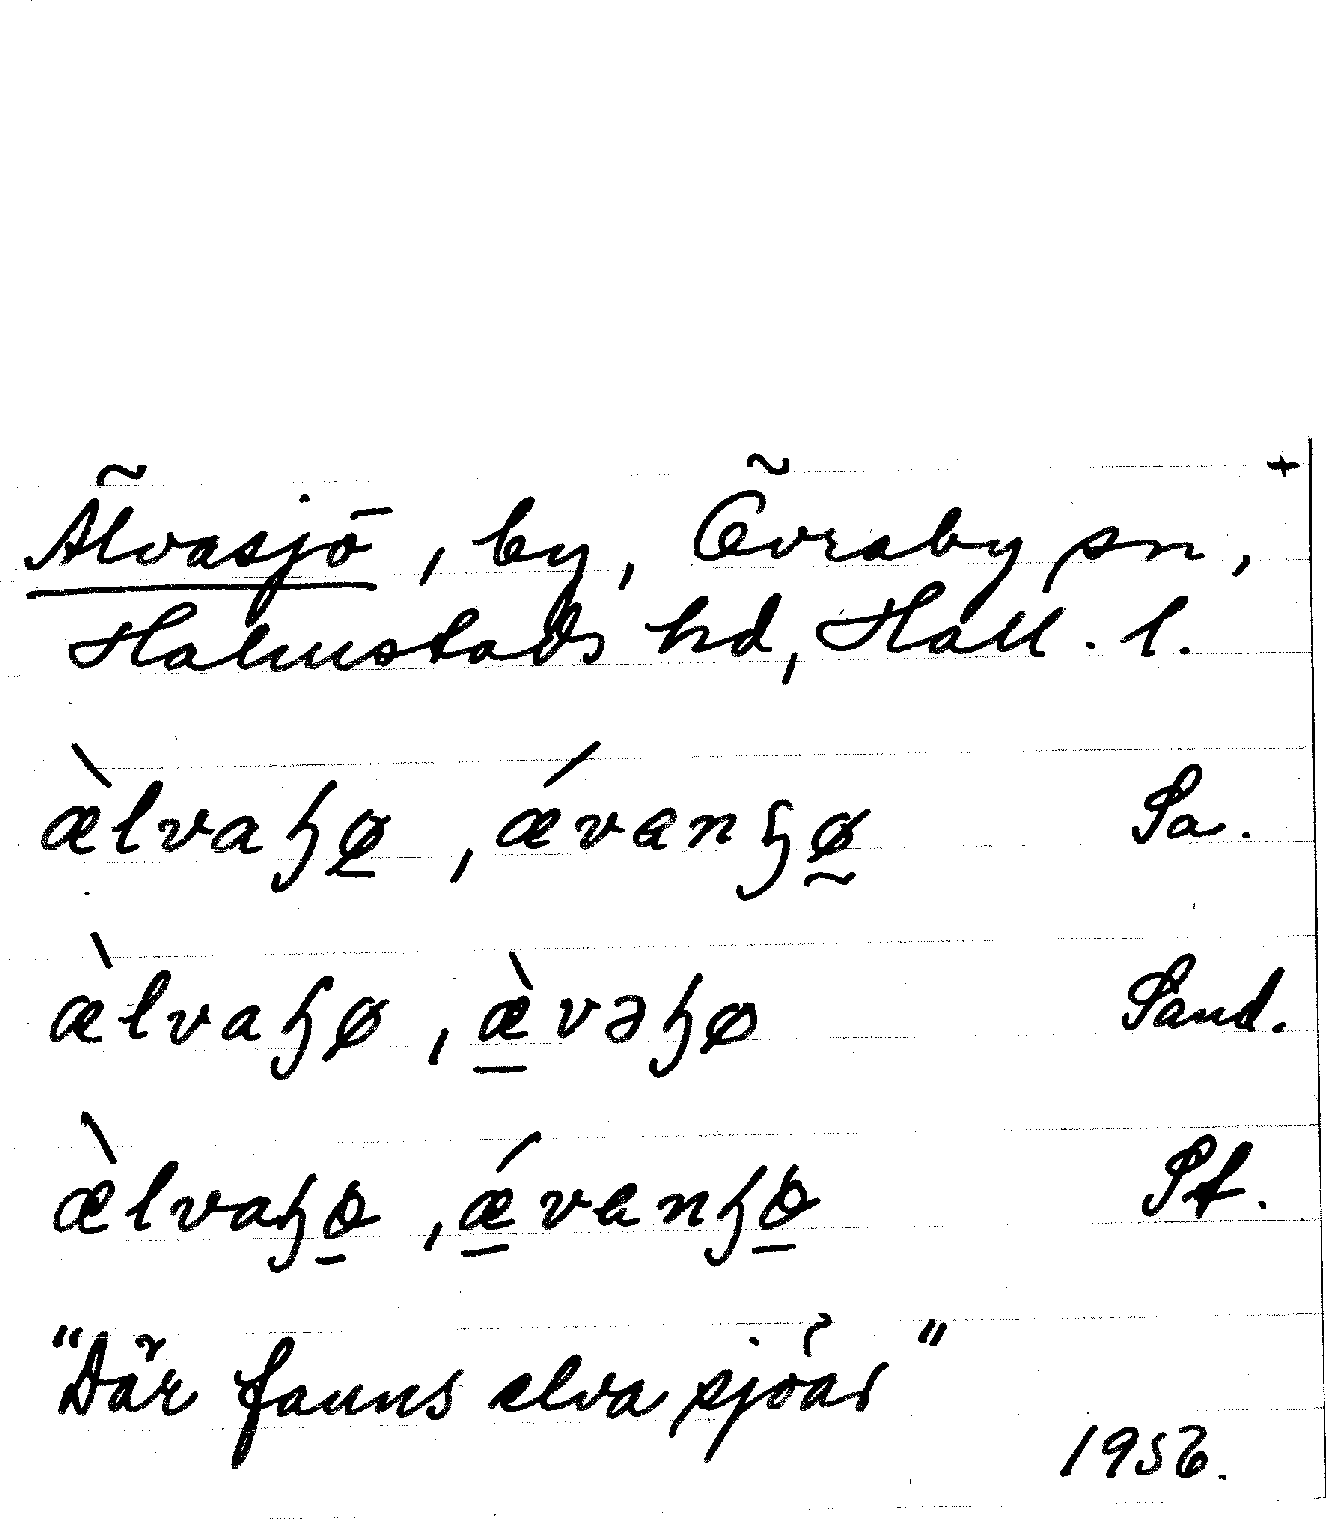 Älvasjö, by, Övraby sn, +
Halmstads hd, Hall. l.
æ̀lvaɧø̲, ǽvanɧø̰ Sa.
æ̀lvaɧø, æ̲̀vəɧø Sand.
æ̀lvaɧö̲, ǽ̲vanɧö̲ St.
"Där fanns elva sjöar"
1956.